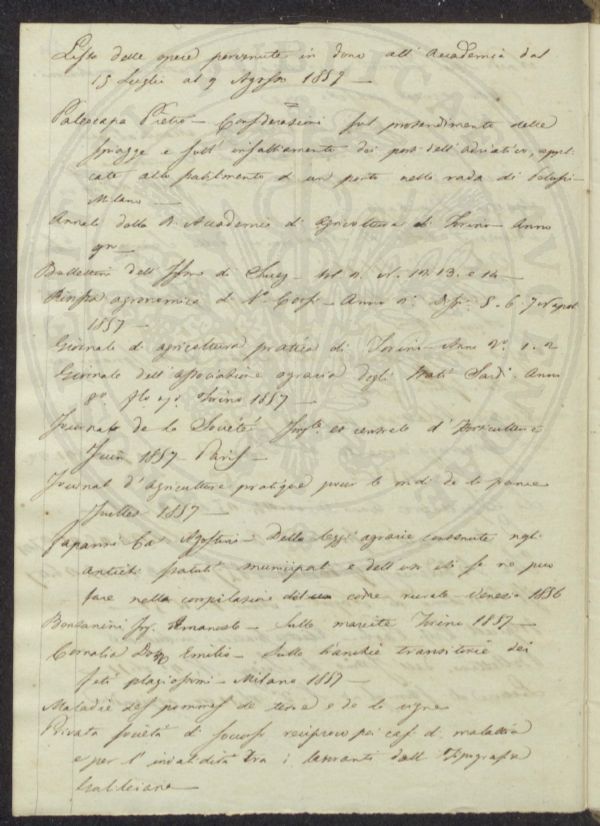 Lista delle opere pervenute in dono all'Accademia dal
15 Luglio al 9 Agosto 1857 —
Paleocapa Pietro — Considerazioni sul protendimento delle
spiagge e sull' insabbiamento dei porti dell'adriatico, appli-
cate allo stabilimento d'un porto nella rada di Pelusio —
Milano —
Annali della R. Accademia di Agricoltura di Torino Anno
Bullettini dell' Istmo di Suez — N. 12. 13. e 14 —
Rivista agronomica — Anno 2º Disp. 5. 6. 7 Napoli
1857 —
Giornale di agricoltura pratica di Torino — Anno 2º. 1. 2
Giornale dell'associazione agraria degli Stati Sardi. Anno
8º Torino 1857 —
Journal de la Société Imple et centrale d' Horticulture
Juin 1857 — Paris —
Journal d'agriculture pratique pour le midi de la france
Juillet 1857 —
Agostino — Delle leggi agrarie contenute negli
antichi statuti municipali e dell'uso che se ne può
fare nella compilazione di un codice rurale — Venezia 1856
Bonzanini Ing. Emanuele — Sulle marcite Torino 1857 —
Cornalia Dott. Emilio — Sulle branchie transitorie dei
feti plagiostomi — Milano 1857 —
Maladie des pommes de terre e de la vigne
Privata società di soccorso reciproco pei casi di malattia
e per l' invalidità tra i lavoranti dall' Tipografia
Galileiana —